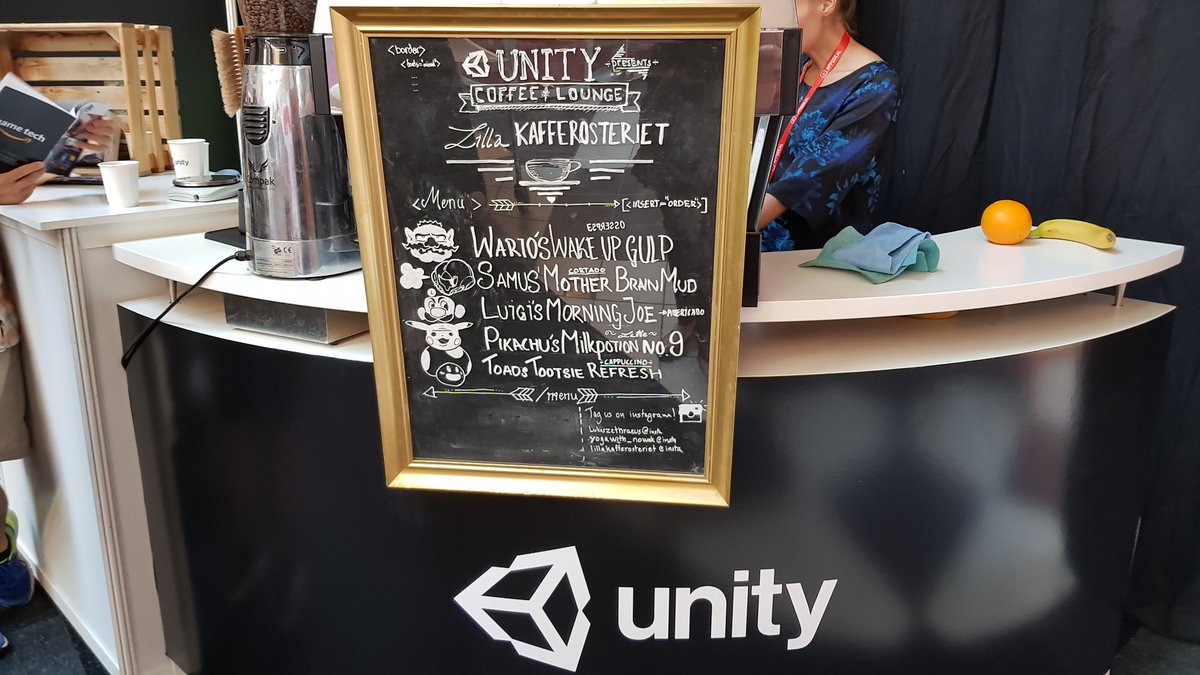 <border>
UNITY
PRESENTS
COFFEE & LOUNGE
Lilla KAFFEROSTERIET
<Menu> [<INSERT="ORDER">]
WARIO'S WAKE UP GULP
CORTADO
SAMUS' MOTHER BRAIN MUD
LUIGI'S MORNING JOE → AMERICANO
Latte
PIKACHU'S MILKPOTION NO.9
CAPPUCCINO
TOADS TOOTSIE REFRESH
/menu
Tag us on instagram!
yogawith_nowak@insta
lillakafferosteriet@insta
unity
ame tech
unity